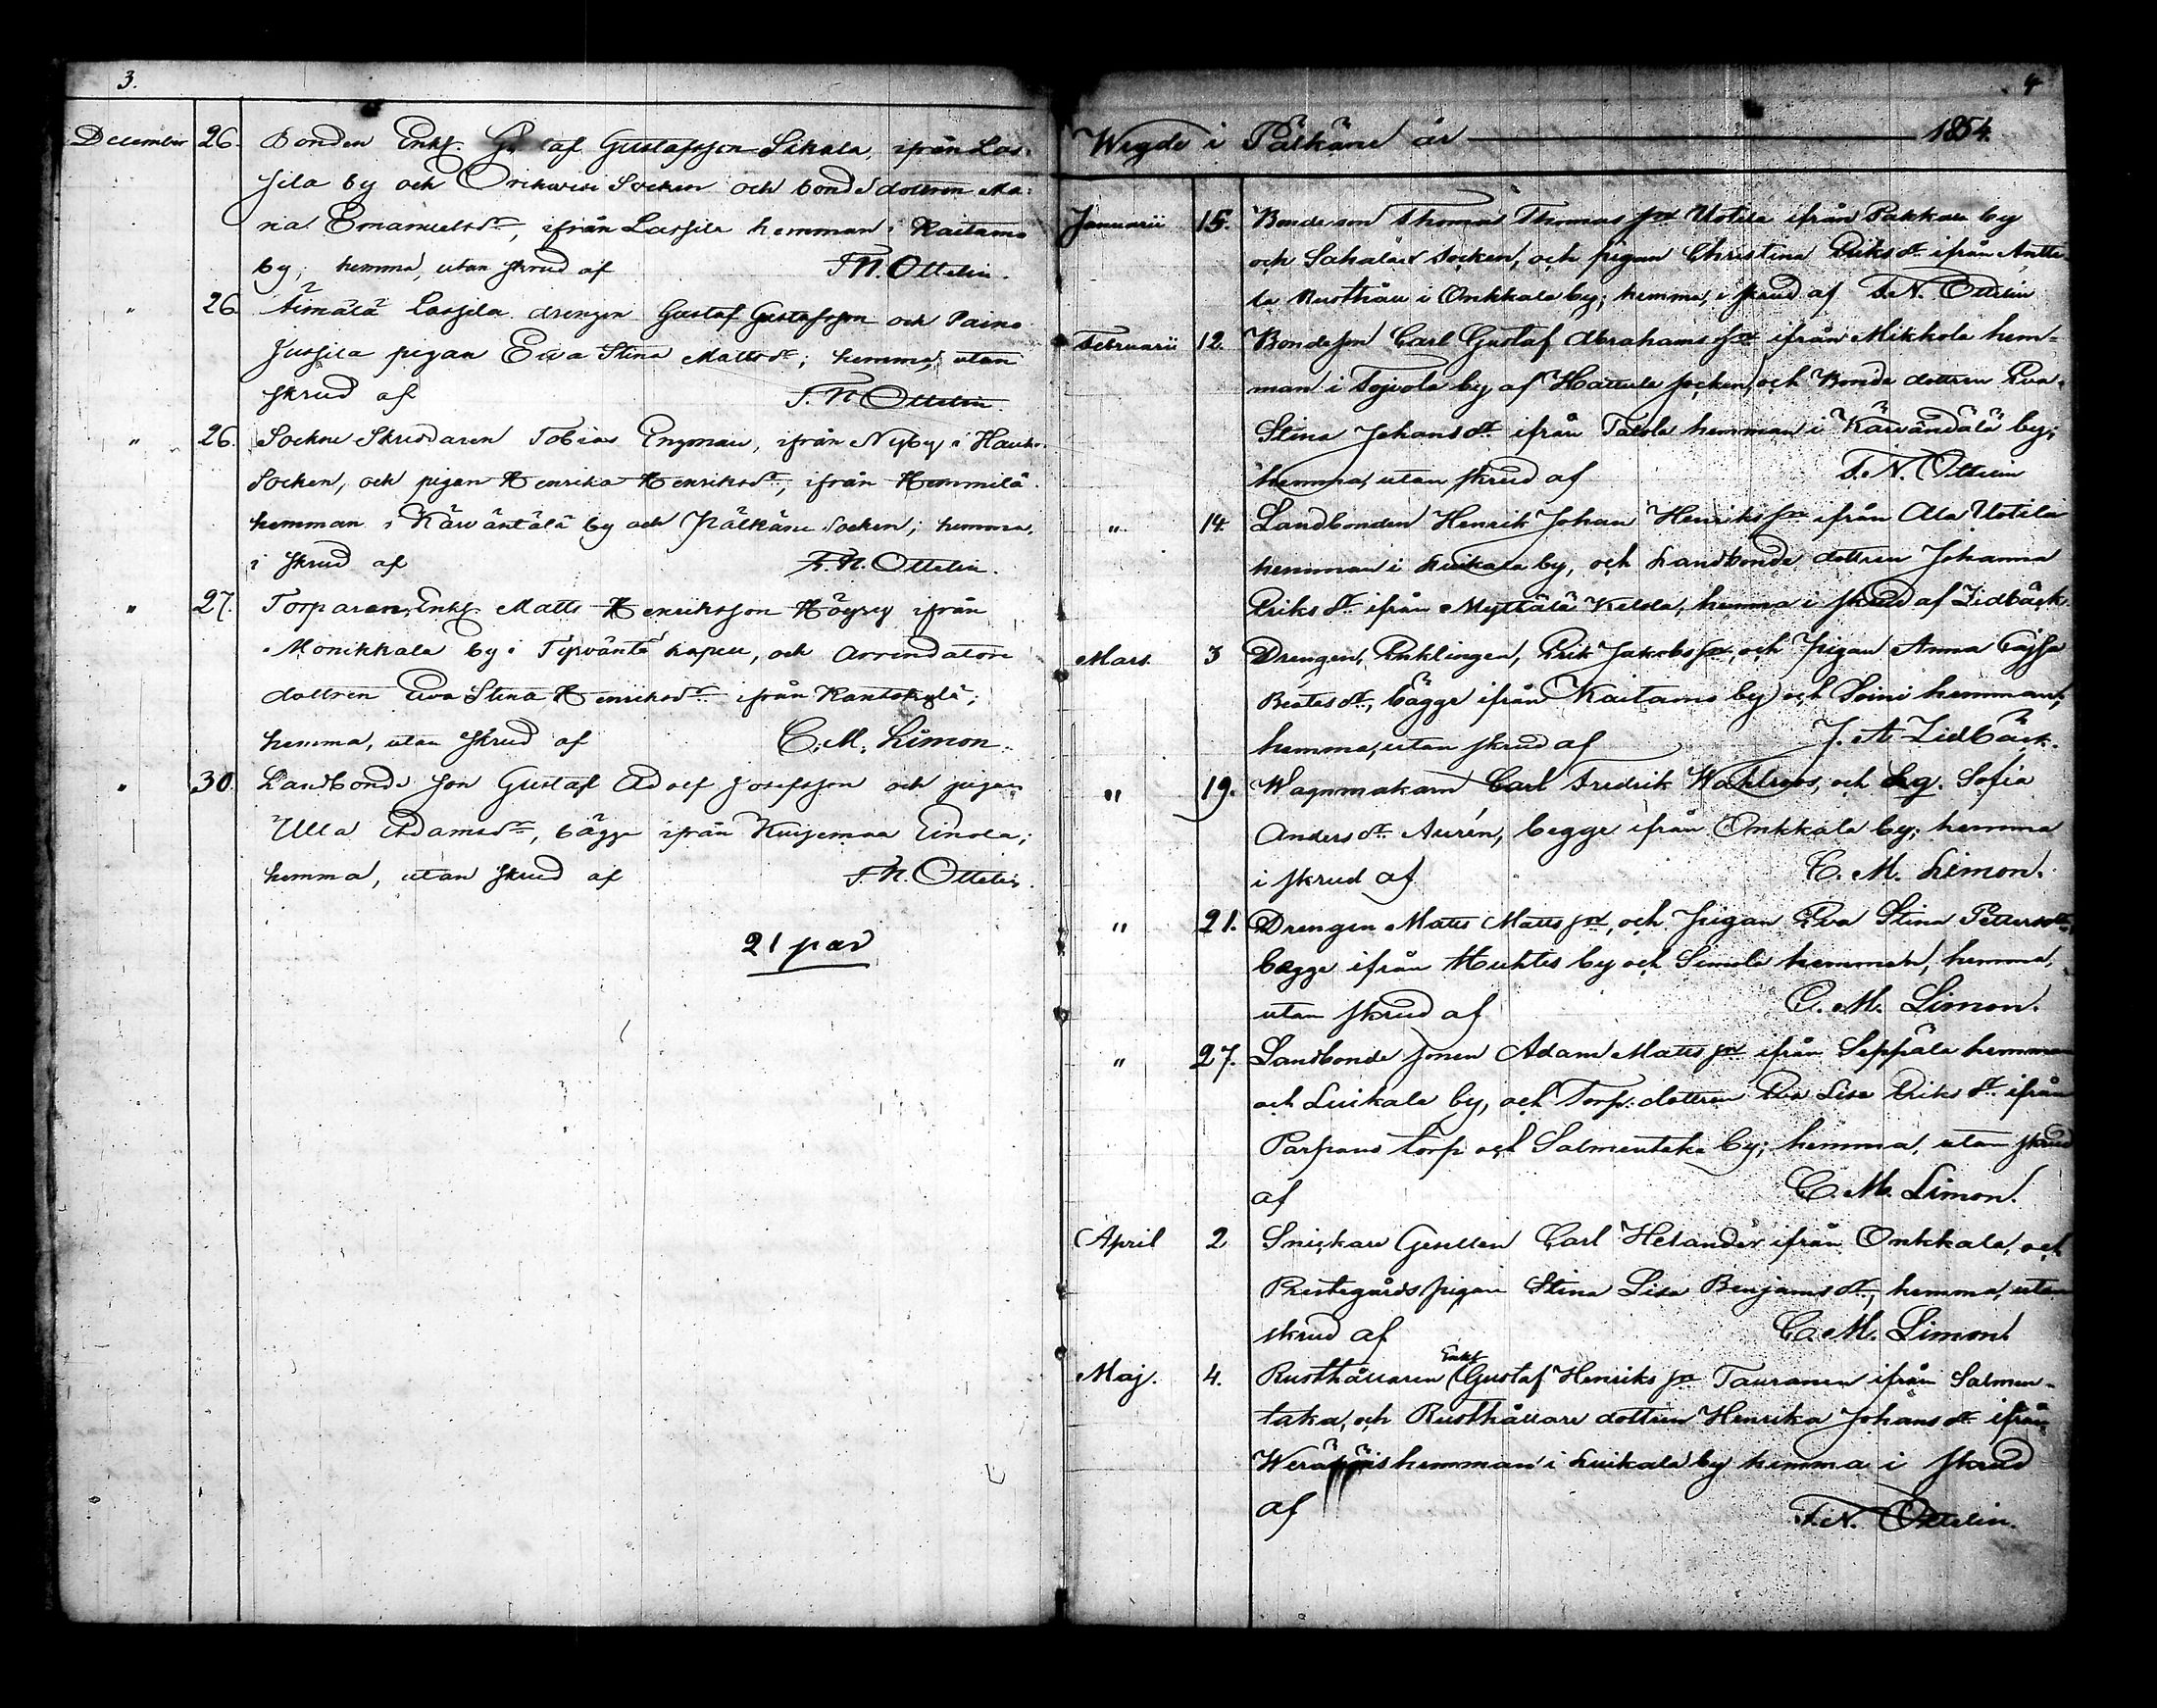 3.
December 26. Bonden Enkl. Gustaf Gustafsson Sikala, ifrån Las-
sila by och Orihvesi Socken och bonde dottren Ma-
ria Emanuelsdr, ifrån Lassila hemman i Kaitamo
by; hemma, utan skrud af F. N. Ottelin.
" 26 Äimälä Lassila drengen Gustaf Gustafsson och Paino
Jussila pigan Ewa Stina Mattsdr; hemma, utan
skrud af F. N. Ottelin.
" 26. Sockne Skräddaren Tobias Engman, ifrån Nyby i Hauho
Socken, och pigan Henrika Henriksdr, ifrån Hemmilä
hemman i Kärväntälä by och Pälkäne Socken; hemma,
i skrud af F. N. Ottelin.
" 27. Torparen, Enkl. Matts Henriksson Höysy ifrån
Monikkala by i Tyrväntö kapell, och Arrendators
dottren Ewa Stina Henriksdr ifrån Kantokylä;
hemma, utan skrud af C. M. Limon.
" 30. Landbonde son Gustaf Adolf Josefsson och pigan
Ulla Adamsdr, bägge ifrån Kuisemaa Einola;
hemma, utan skrud af F. N. Ottelin.
21 par
4
Wigde i Pälkäne år 1854.
Januarii 15. Bonde son Thomas Thomas sn Uotila ifrån Pakkala by
och Sahalax Socken, och pigan Christina Eriks dr ifrån Antti-
la Rusthåll i Onkkala by; hemma, i skrud af F. N. Ottelin
Februarii 12. Bondeson Carl Gustaf Abrahams sn ifrån Mikkola hem-
man i Tojvola by af Hattula socken, och Bonde dottren Eva
Stina Johans dr ifrån Talola hemman i Kärväntälä by;
hemma, utan skrud af F. N. Ottelin
" 14. Landbonden Henrik Johan Henriks sn ifrån Ala Uotila
hemman i Luikala by, och Landbonde dottren Johanna
Eriks dr ifrån Myttälä Kelola, hemma i skrud af Lidbäck
Mars 3 Drengen, Enklingen, Erik Jakobs sn, och Pigan Anna Cajsa
Beatas dr, bägge ifrån Kaitamo by och Soini hemman;
hemma, utan skrud af J. A. Lidbäck.
" 19. Wagnmakarn Carl Fredrik Wahlroos, och Sofia
Anders dr Aurén, begge ifrån Onkkala by; hemma
i skrud af C. M. Limon.
" 21. Drengen Matts Matts sn, och Pigan Eva Stina Petters dr,
begge ifrån Huhtis by och Simola hemman, hemma,
utan skrud af C. M. Limon.
" 27. Landbonde sonen Adam Matts sn ifrån Seppälä hemman
och Luikala by, och Torp. dottren Eva Lisa Eriks dr ifrån
Parpans torp och Salmentaka by; hemma, utan skrud
af C. M. Limon.
April 2 Snickare Gesellen Carl Helander ifrån Onkkala, och
Prestegårds pigan Stina Lisa Benjams dr, hemma, utan
skrud af C. M. Limon.
Maj. 4. Rusthållaren Enkl. Gustaf Henriks sn Tauranen ifrån Salmen-
taka, och Rusthållare dottren Henrika Johans dr ifrån
hemman i Luikala by hemma i skrud
af F. N. Ottelin.